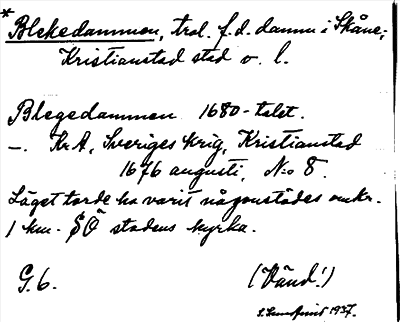 * Blekedammen, trol. f.d. damm i Skåne;
Kristianstad stad o. l.
Blegedammen 1680-talet.
—. Kr A, Sveriges krig, Kristianstad
1676 augusti, N:o 8.
Läget torde ha varit någonstädes omkr.
1 km. SÖ stadens kyrka.
G. 6.
(Vänd!)
1937.